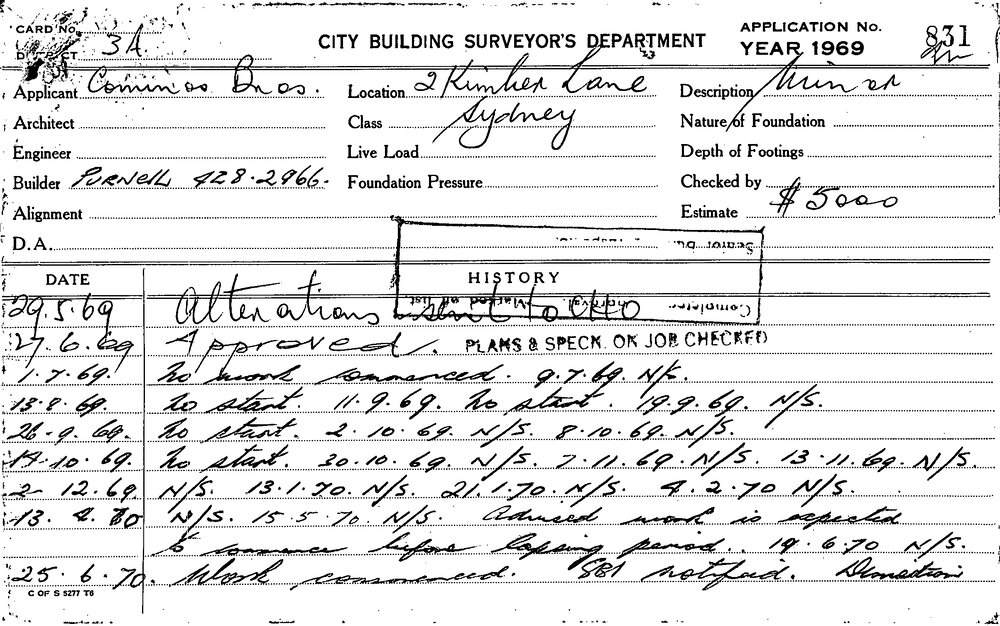 CARD No. 3A CITY BUILDING SURVEYOR'S DEPARTMENT APPLICATION No. 831
YEAR 1969
Applicant Cominos Bros. Location 2 Kimber Lane Description Minor
Architect Class Sydney Nature of Foundation
Engineer Live Load Depth of Footings
Builder PURNELL 428.2966. Foundation Pressure Checked by
Alignment Estimate $ 5000
D.A.
DATE HISTORY
29.5.69 Alterations sent to
27.6.69 Approved. PLANS & SPECN. ON JOB CHECKED
1.7.69. No work commenced. 9.7.69. N/S.
13.8.69. No start. 11.9.69. No start. 19.9.69. N/S.
26.9.69. No start. 2.10.69. N/S. 8.10.69. N/S.
14.10.69. No start. 30.10.69. N/S. 7.11.69. N/S. 13.11.69. N/S.
2.12.69. N/S. 13.1.70. N/S. 21.1.70. N/S. 4.2.70 N/S.
13.4.70 N/S. 15.5.70. N/S. Advised work is expected
to commence before lapsing period.. 19.6.70 N/S.
25.6.70. Work commenced. notified.
C OF S 5277 T6